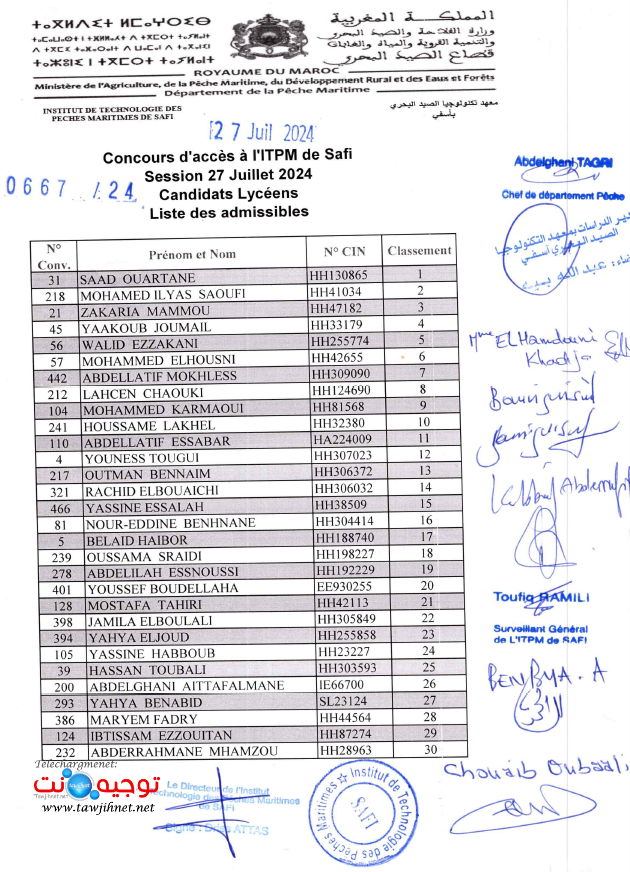 ⵜⴰⴳⵍⴷⵉⵜ ⵏ ⵍⵎⵖⵔⵉⴱ
المملكـــة المغربية
وزارة الفلاحة والصيد البحري
والتنمية القروية والمياه والغابات
قطاع الصيد البحري
ROYAUME DU MAROC
Ministère de l'Agriculture, de la Pêche Maritime, du Développement Rural et des Eaux et Forêts
Département de la Pêche Maritime
INSTITUT DE TECHNOLOGIE DES
PECHES MARITIMES DE SAFI
معهد تكنولوجيا الصيد البحري
بأسفي
27 Juil 2024
Concours d'accès à l'ITPM de Safi
Session 27 Juillet 2024
Candidats Lycéens
Liste des admissibles
0667 /24
Abdelghani TAGRI
Chef de département Pêche
N° Conv. Prénom et Nom N° CIN Classement
31 SAAD OUARTANE HH130865 1
218 MOHAMED ILYAS SAOUFI HH41034 2
21 ZAKARIA MAMMOU HH47182 3
45 YAAKOUB JOUMAIL HH33179 4
56 WALID EZZAKANI HH255774 5
57 MOHAMMED ELHOUSNI HH42655 6
442 ABDELLATIF MOKHLESS HH309090 7
212 LAHCEN CHAOUKI HH124690 8
104 MOHAMMED KARMAOUI HH81568 9
241 HOUSSAME LAKHEL HH32380 10
110 ABDELLATIF ESSABAR HA224009 11
4 YOUNESS TOUGUI HH307023 12
217 OUTMAN BENNAIM HH306372 13
321 RACHID ELBOUAICHI HH306032 14
466 YASSINE ESSALAH HH38509 15
81 NOUR-EDDINE BENHNANE HH304414 16
5 BELAID HAIBOR HH188740 17
239 OUSSAMA SRAIDI HH198227 18
278 ABDELILAH ESSNOUSSI HH192229 19
401 YOUSSEF BOUDELLAHA EE930255 20
128 MOSTAFA TAHIRI HH42113 21
398 JAMILA ELBOULALI HH305849 22
394 YAHYA ELJOUD HH255858 23
105 YASSINE HABBOUB HH23227 24
39 HASSAN TOUBALI HH303593 25
200 ABDELGHANI AITTAFALMANE IE66700 26
293 YAHYA BENABID SL23124 27
386 MARYEM FADRY HH44564 28
124 IBTISSAM EZZOUITAN HH87274 29
232 ABDERRAHMANE MHAMZOU HH28963 30
Mme ELHamdouni
Khadija
Toufiq RAMILI
Surveillant Général
de L'ITPM de SAFI
BENBYA. A
Chouaib Oubaali
Télèchargmenet:
توجيه نت
www.tawjihnet.net
Le Directeur de l'Institut
de Technologie des Pêches Maritimes
de SAFI
Signé : Driss ATTAS
Institut de Technologie des Pêches Maritimes
SAFI